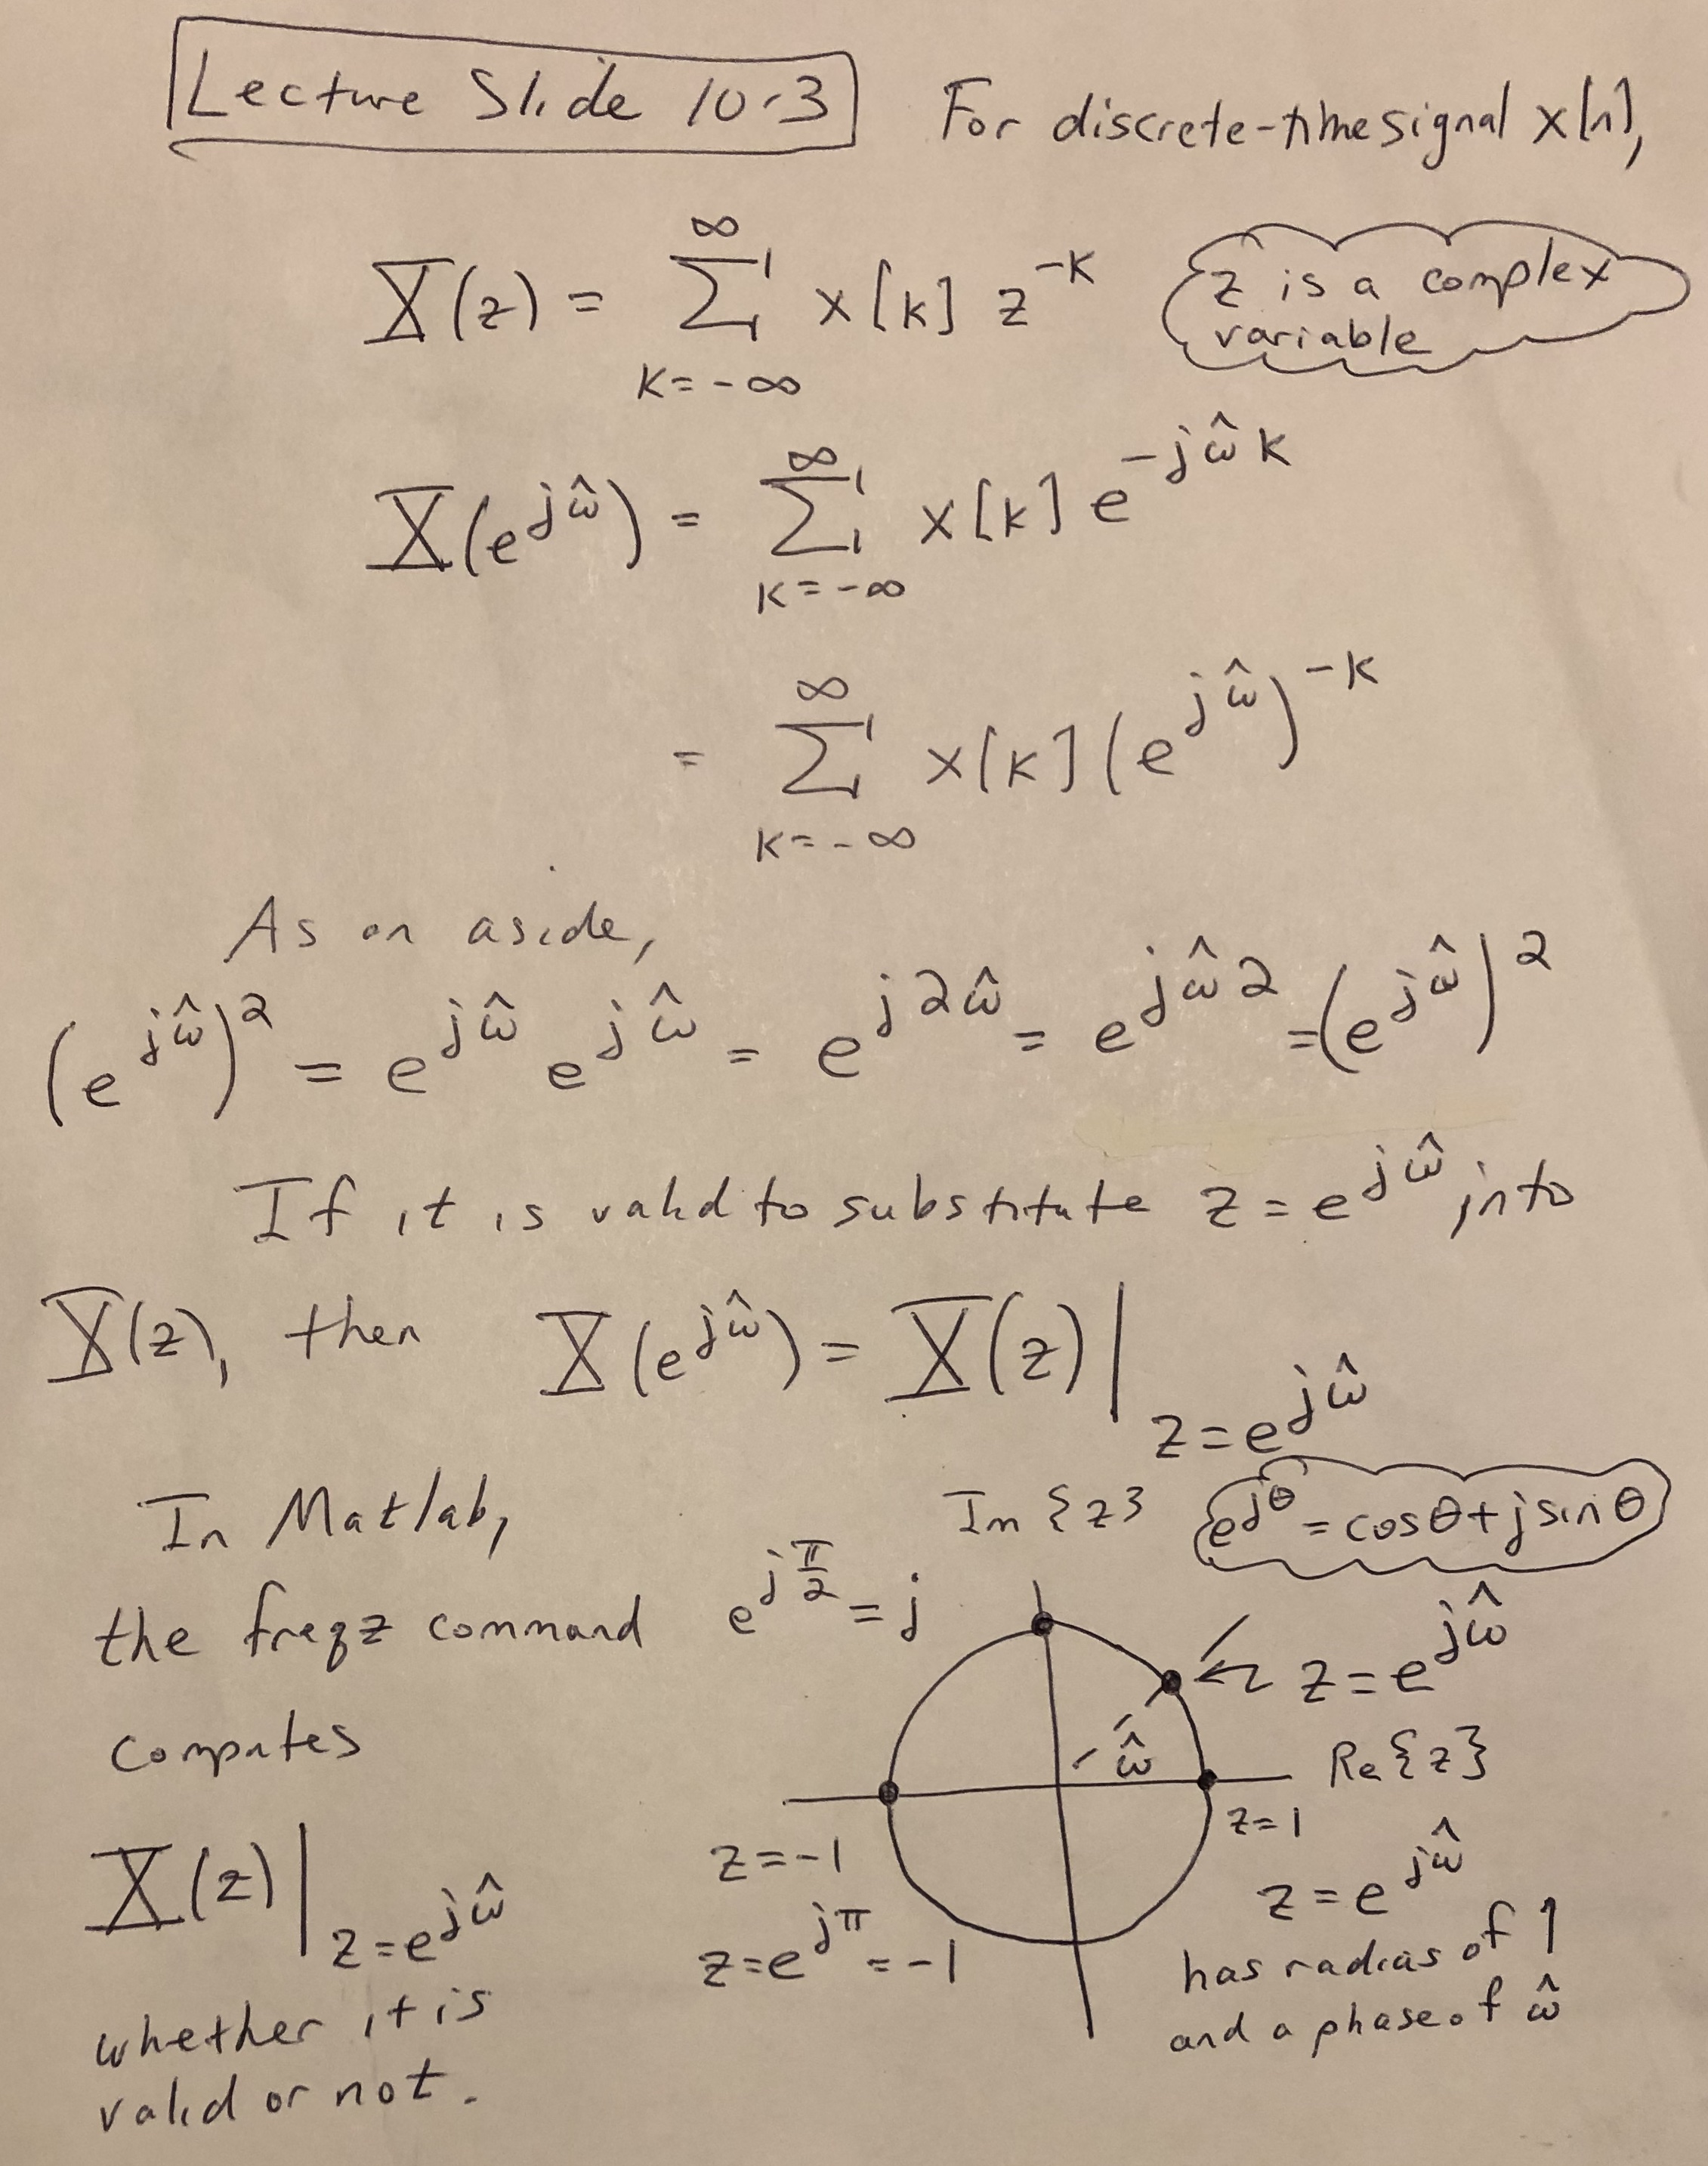 Lecture Slide 10-3 For discrete-time signal x[n],
X(z) = ∑_{k=-∞}^{∞} x[k] z^{-k}
z is a complex
variable
X(e^{jω̂}) = ∑_{k=-∞}^{∞} x[k] e^{-jω̂k}
= ∑_{k=-∞}^{∞} x[k] (e^{jω̂})^{-k}
As an aside,
(e^{jω̂})^2 = e^{jω̂} e^{jω̂} = e^{j2ω̂} = e^{jω̂2} = (e^{jω̂})^2
If it is valid to substitute z = e^{jω̂} into
X(z), then X(e^{jω̂}) = X(z)|_{z=e^{jω̂}}
In Matlab,
the freqz command
computes
X(z)|_{z=e^{jω̂}}
whether it is
valid or not.
Im{z}
e^{jθ} = cosθ + j sinθ
e^{jπ/2} = j
z = e^{jω̂}
ω̂
Re{z}
z=1
z=-1
z=e^{jπ} = -1
z = e^{jω̂}
has radius of 1
and a phase of ω̂